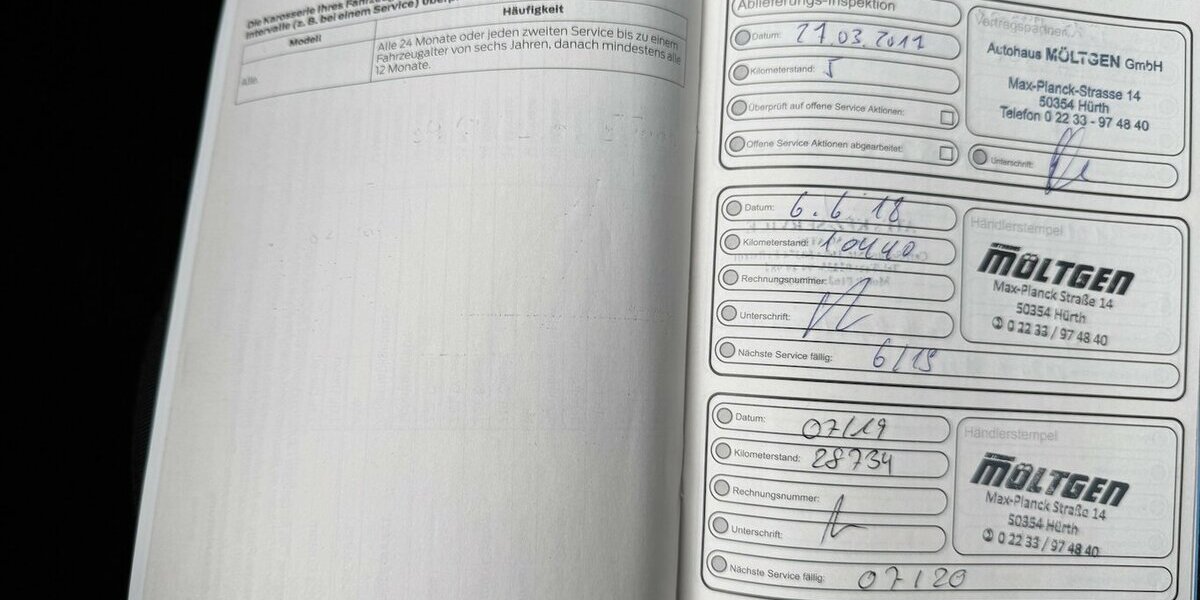 Die Karosserie Ihres
Intervalle (z. B. bei einem Service)
Modell
Häufigkeit
Alle
Alle 24 Monate oder jeden zweiten Service bis zu einem
Fahrzeugalter von sechs Jahren, danach mindestens alle
12 Monate.
Ablieferungs-Inspektion
Datum: 27.03.2017
Kilometerstand: 5
Überprüft auf offene Service Aktionen:
Offene Service Aktionen abgearbeitet:
Vertragspartner
Autohaus MÖLTGEN GmbH
Max-Planck-Strasse 14
50354 Hürth
Telefon 0 22 33 - 97 48 40
Unterschrift:
Datum: 6.6 18
Kilometerstand: 10440
Rechnungsnummer:
Unterschrift:
Nächste Service fällig: 6/19
Händlerstempel
MÖLTGEN
Max-Planck Straße 14
50354 Hürth
0 22 33 / 97 48 40
Datum: 07/19
Kilometerstand: 28734
Rechnungsnummer:
Unterschrift:
Nächste Service fällig: 07/20
Händlerstempel
MÖLTGEN
Max-Planck Straße 14
50354 Hürth
0 22 33 / 97 48 40